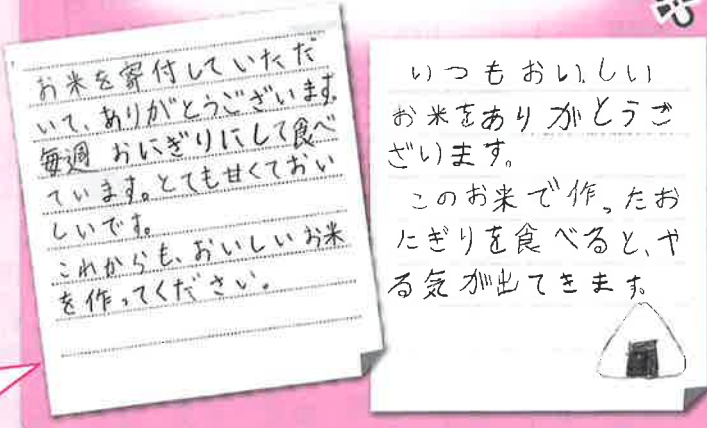 お米を寄付していただ
いて、ありがとうございます。
毎週 おにぎりにして食べ
ています。とても甘くておい
しいです。
これからも、おいしいお米
を作ってください。
いつもおいしい
お米をありがとうご
ざいます。
このお米で作ったお
にぎりを食べると、や
る気が出てきます。